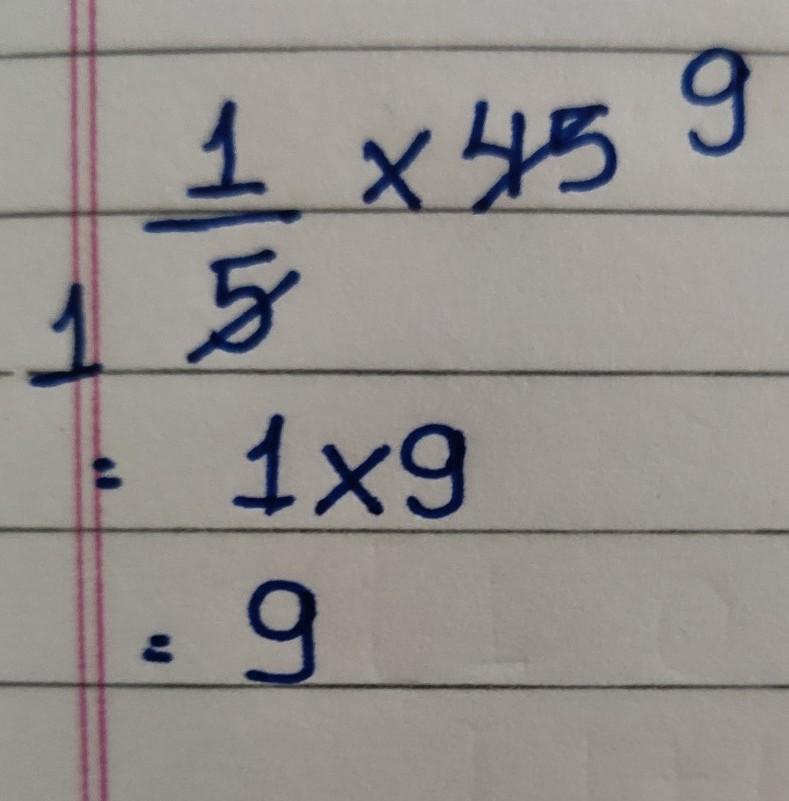 1/5 × 45 9
1
= 1×9
= 9